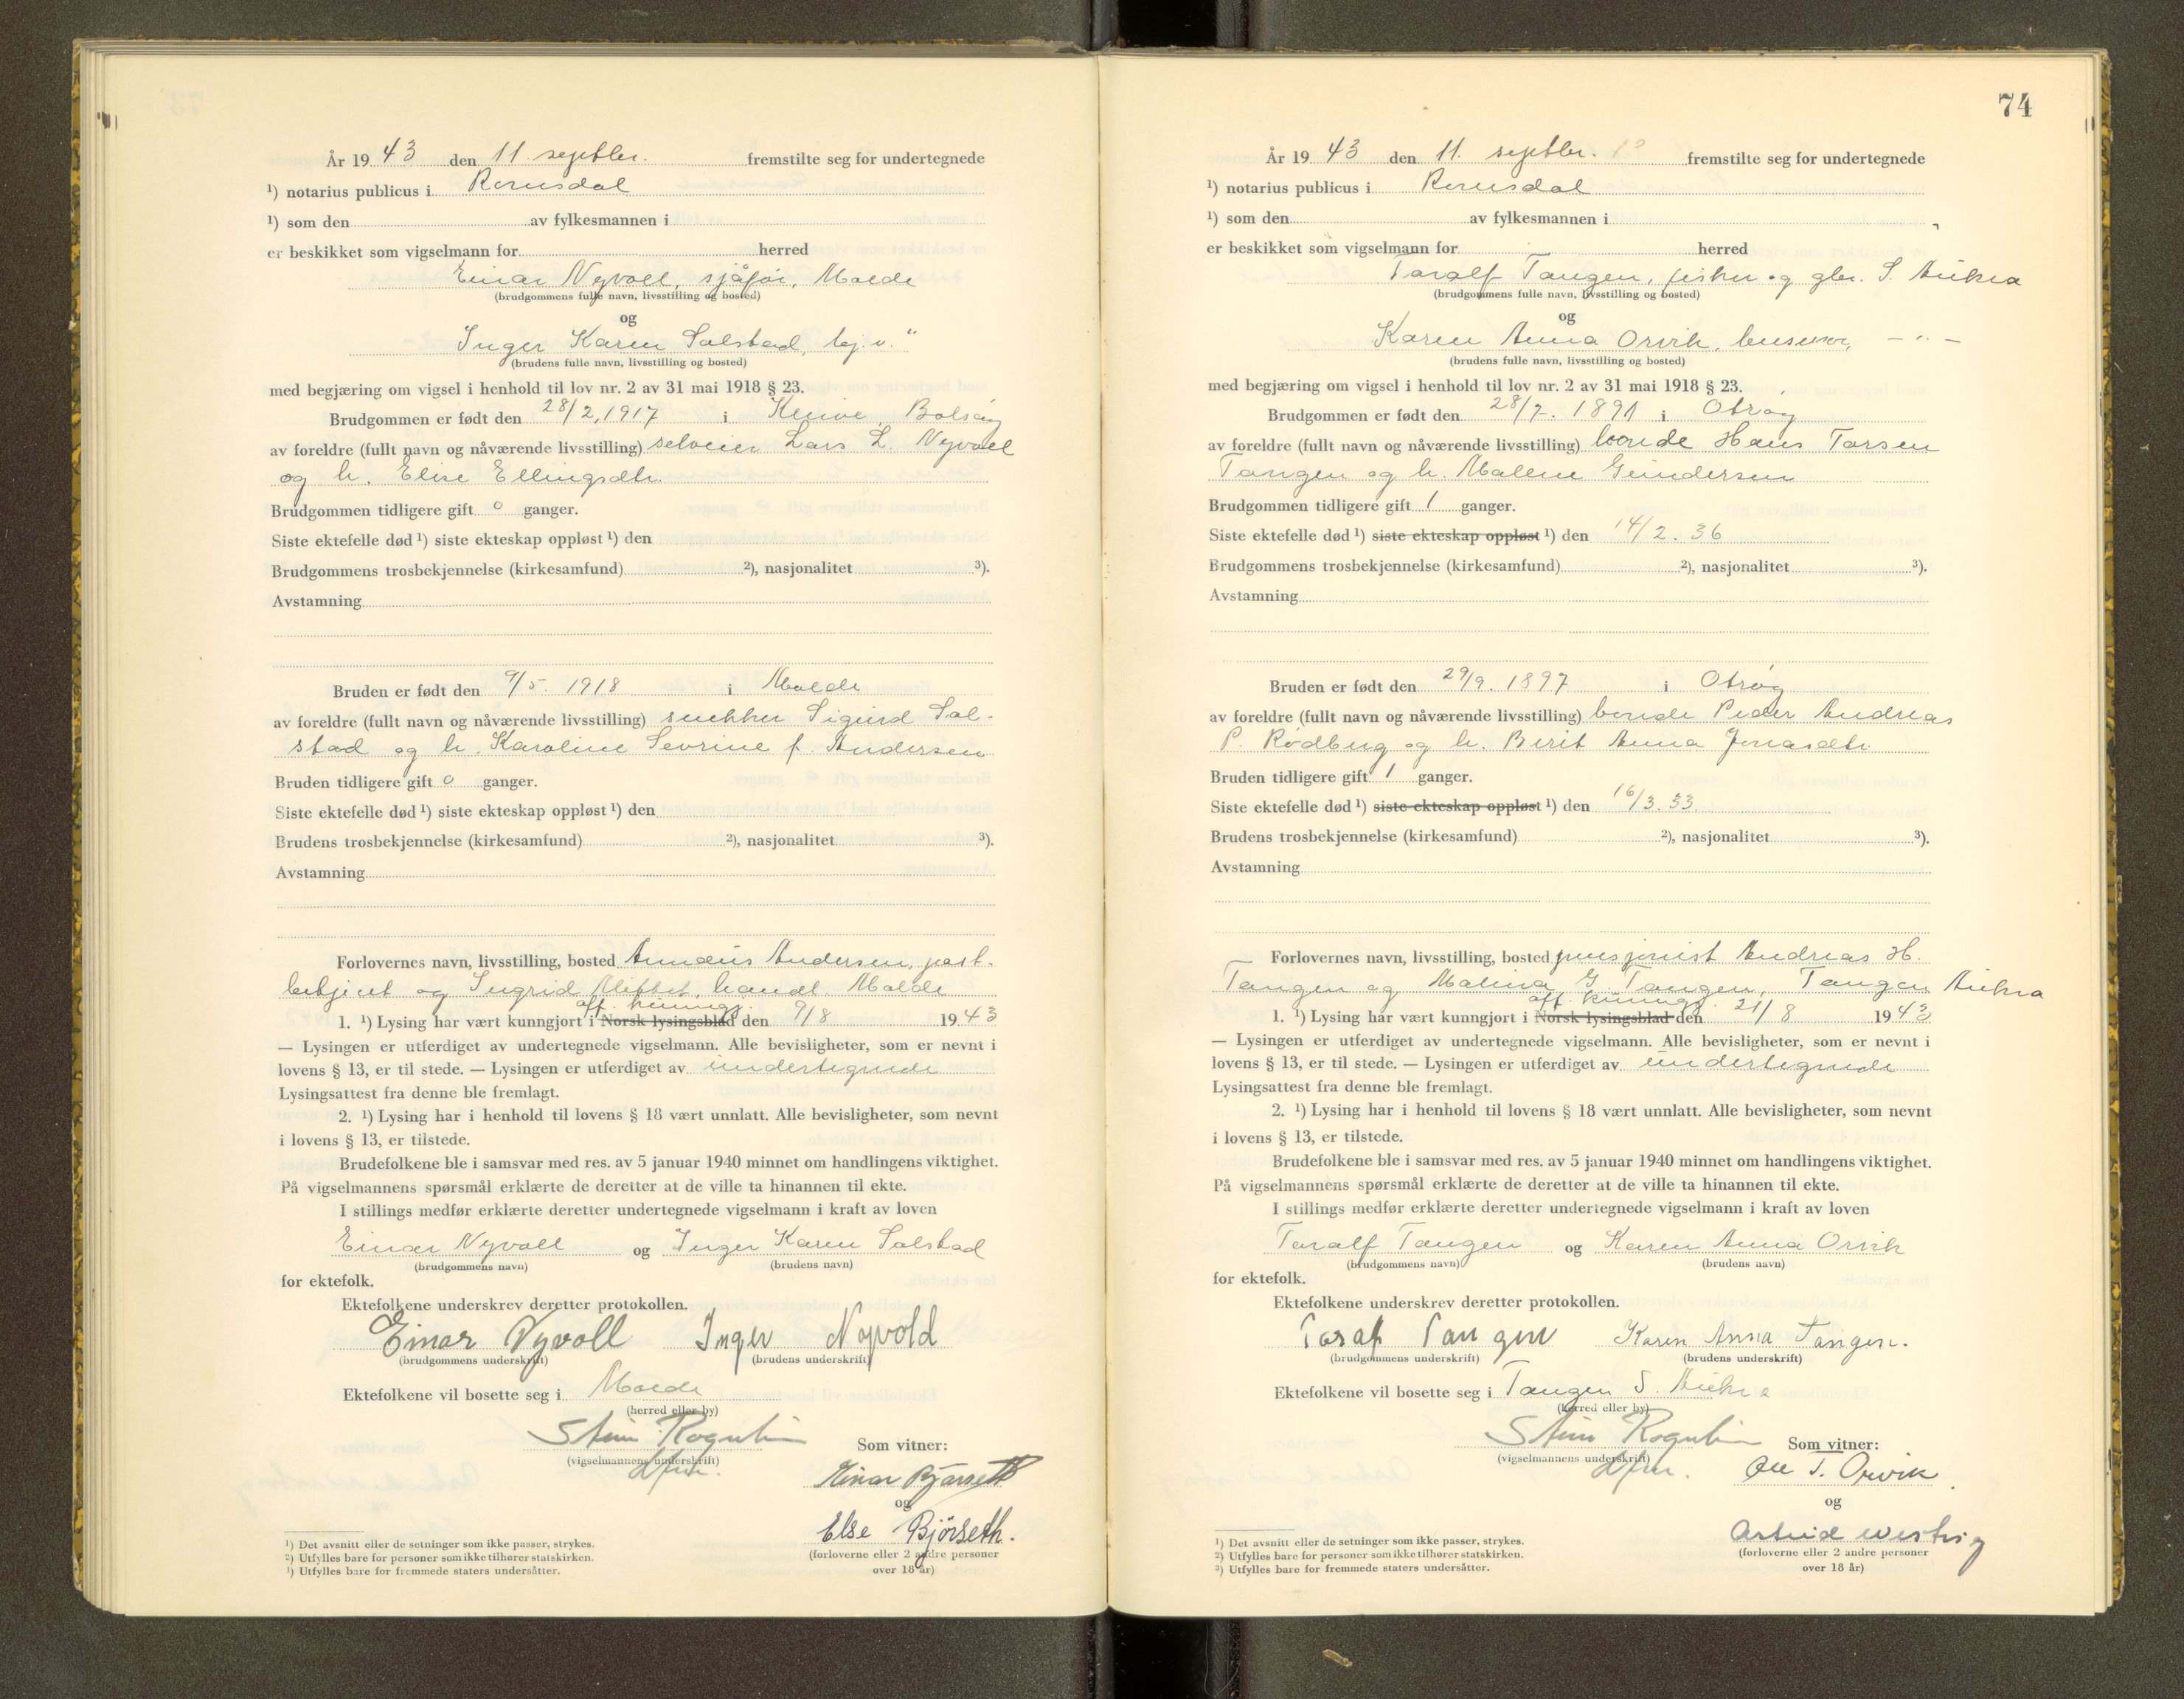 År 19 43 den 11. septbr. fremstilte seg for undertegnede
¹) notarius publicus i Romsdal
¹) som den av fylkesmannen i
er beskikket som vigselmann for herred
Einar Nyvoll, sjåfør, Molde
(brudgommens fulle navn, livsstilling og bosted)
og
Inger Karen Solstad, "
(brudens fulle navn, livsstilling og bosted)
med begjæring om vigsel i henhold til lov nr. 2 av 31 mai 1918 § 23.
Brudgommen er født den 28/2, 1917 i Kleive, Bolsøy
av foreldre (fullt navn og nåværende livsstilling) selveier Lars L. Nyvoll
og h. Elise Ellingsdtr.
Brudgommen tidligere gift 0 ganger.
Siste ektefelle død ¹) siste ekteskap oppløst ¹) den
Brudgommens trosbekjennelse (kirkesamfund) ²), nasjonalitet ³).
Avstamning
Bruden er født den 9/5. 1918 i Molde
av foreldre (fullt navn og nåværende livsstilling) snekker Sigurd Sol-
stad og h. Karoline Sevrine f. Andersen
Bruden tidligere gift 0 ganger.
Siste ektefelle død ¹) siste ekteskap oppløst ¹) den
Brudens trosbekjennelse (kirkesamfund) ²), nasjonalitet ³).
Avstamning
Forlovernes navn, livsstilling, bosted Andersen, post-
betjent og Ingrid Mittet, handl. Molde
off. kunngj.
1. ¹) Lysing har vært kunngjort i Norsk lysingsblad den 9/8 19 43
— Lysingen er utferdiget av undertegnede vigselmann. Alle bevisligheter, som er nevnt i
lovens § 13, er til stede. — Lysingen er utferdiget av undertegnede
Lysingsattest fra denne ble fremlagt.
2. ¹) Lysing har i henhold til lovens § 18 vært unnlatt. Alle bevisligheter, som nevnt
i lovens § 13, er tilstede.
Brudefolkene ble i samsvar med res. av 5 januar 1940 minnet om handlingens viktighet.
På vigselmannens spørsmål erklærte de deretter at de ville ta hinannen til ekte.
I stillings medfør erklærte deretter undertegnede vigselmann i kraft av loven
Einar Nyvoll og Inger Karen Solstad
(brudgommens navn) (brudens navn)
for ektefolk.
Ektefolkene underskrev deretter protokollen.
Einar Nyvoll Inger Nyvold
(brudgommens underskrift) (brudens underskrift)
Ektefolkene vil bosette seg i Molde
(herred eller by)
Stein Rognlien
(vigselmannens underskrift)
dfm.
Som vitner:
Einar Bjørseth
og
Else Bjørseth.
(forloverne eller 2 andre personer
over 18 år)
¹) Det avsnitt eller de setninger som ikke passer, strykes.
²) Utfylles bare for personer som ikke tilhører statskirken.
³) Utfylles bare for fremmede staters undersåtter.
74
År 19 43 den 11. septbr. fremstilte seg for undertegnede
¹) notarius publicus i Romsdal
¹) som den av fylkesmannen i
er beskikket som vigselmann for herred
Toralf Tangen, fisker og gbr. S. Aukra
(brudgommens fulle navn, livsstilling og bosted)
og
Karen Anna Orvik, husmor, — " —
(brudens fulle navn, livsstilling og bosted)
med begjæring om vigsel i henhold til lov nr. 2 av 31 mai 1918 § 23.
Brudgommen er født den 28/7. 1891 i Otrøy
av foreldre (fullt navn og nåværende livsstilling) bonde Hans Tarsen
Tangen og h. Malene Gundersen
Brudgommen tidligere gift 1 ganger.
Siste ektefelle død ¹) siste ekteskap oppløst ¹) den 14/2. 36
Brudgommens trosbekjennelse (kirkesamfund) ²), nasjonalitet ³).
Avstamning
Bruden er født den 29/9. 1897 i Otrøy
av foreldre (fullt navn og nåværende livsstilling) bonde Peder Andreas
P. Rødberg og h. Berit Anna Jonasdtr.
Bruden tidligere gift 1 ganger.
Siste ektefelle død ¹) siste ekteskap oppløst ¹) den 16/3. 33.
Brudens trosbekjennelse (kirkesamfund) ²), nasjonalitet ³).
Avstamning
Forlovernes navn, livsstilling, bosted pensjonist Andreas H.
Tangen og Malina G. Tangen, Tangen Aukra
off. kunngj.
1. ¹) Lysing har vært kunngjort i Norsk lysingsblad den 21/8 19 43
— Lysingen er utferdiget av undertegnede vigselmann. Alle bevisligheter, som er nevnt i
lovens § 13, er til stede. — Lysingen er utferdiget av undertegnede
Lysingsattest fra denne ble fremlagt.
2. ¹) Lysing har i henhold til lovens § 18 vært unnlatt. Alle bevisligheter, som nevnt
i lovens § 13, er tilstede.
Brudefolkene ble i samsvar med res. av 5 januar 1940 minnet om handlingens viktighet.
På vigselmannens spørsmål erklærte de deretter at de ville ta hinannen til ekte.
I stillings medfør erklærte deretter undertegnede vigselmann i kraft av loven
Toralf Tangen og Karen Anna Orvik
(brudgommens navn) (brudens navn)
for ektefolk.
Ektefolkene underskrev deretter protokollen.
Toralf Tangen Karen Anna Tangen.
(brudgommens underskrift) (brudens underskrift)
Ektefolkene vil bosette seg i Tangen S. Aukra
(herred eller by)
Stein Rognlien
(vigselmannens underskrift)
dfm.
Som vitner:
Ole T. Orvik
og
Astrid
(forloverne eller 2 andre personer
over 18 år)
¹) Det avsnitt eller de setninger som ikke passer, strykes.
²) Utfylles bare for personer som ikke tilhører statskirken.
³) Utfylles bare for fremmede staters undersåtter.